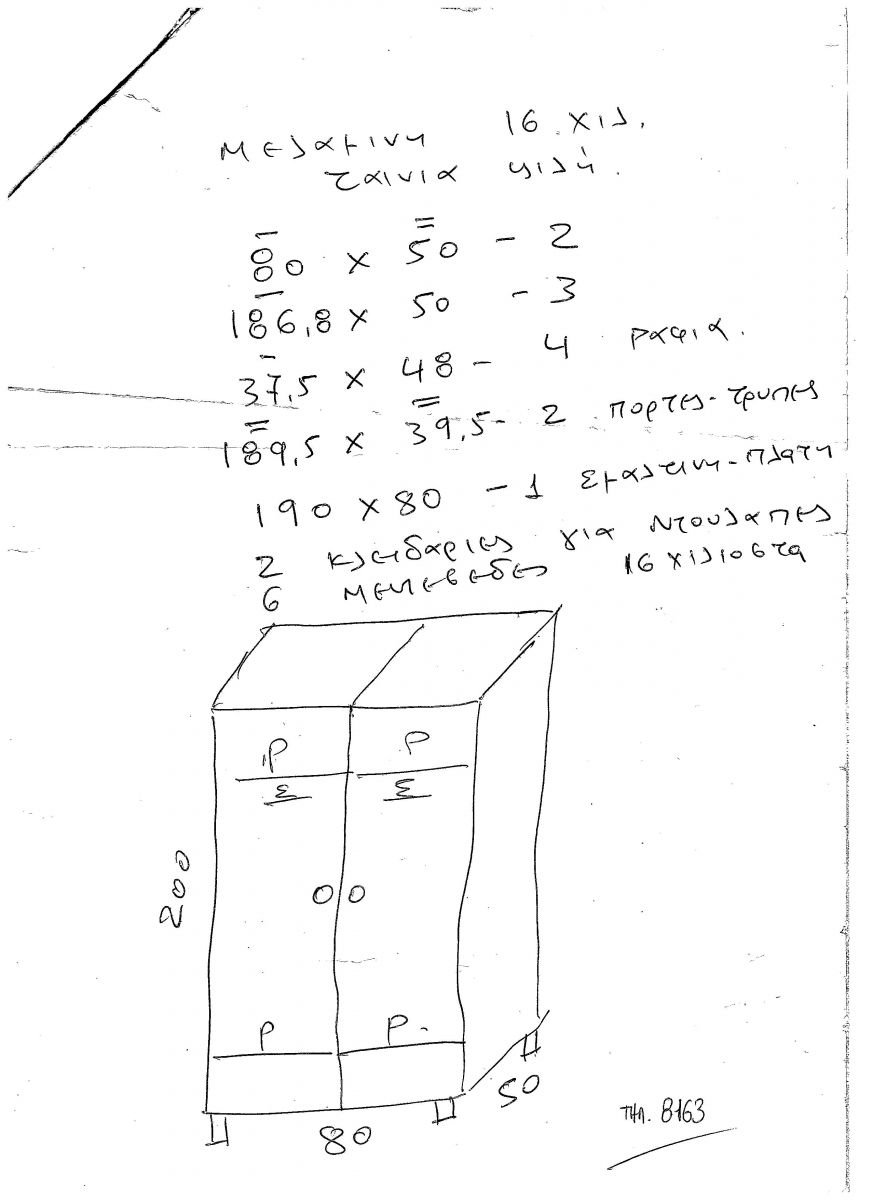 Μελαμινη 16 χιλ.
ταινια ψιλή.
80 x 50 - 2
186,8 x 50 - 3
37,5 x 48 - 4 ραφια.
189,5 x 39,5 - 2 πορτες-τρυπες
190 x 80 - 1 πλατη
2 κλειδαριες για ντουλαπες
6 μεντεσεδες 16 χιλιοστα
P P
Σ Σ
200
P P.
50
80
τηλ. 8163